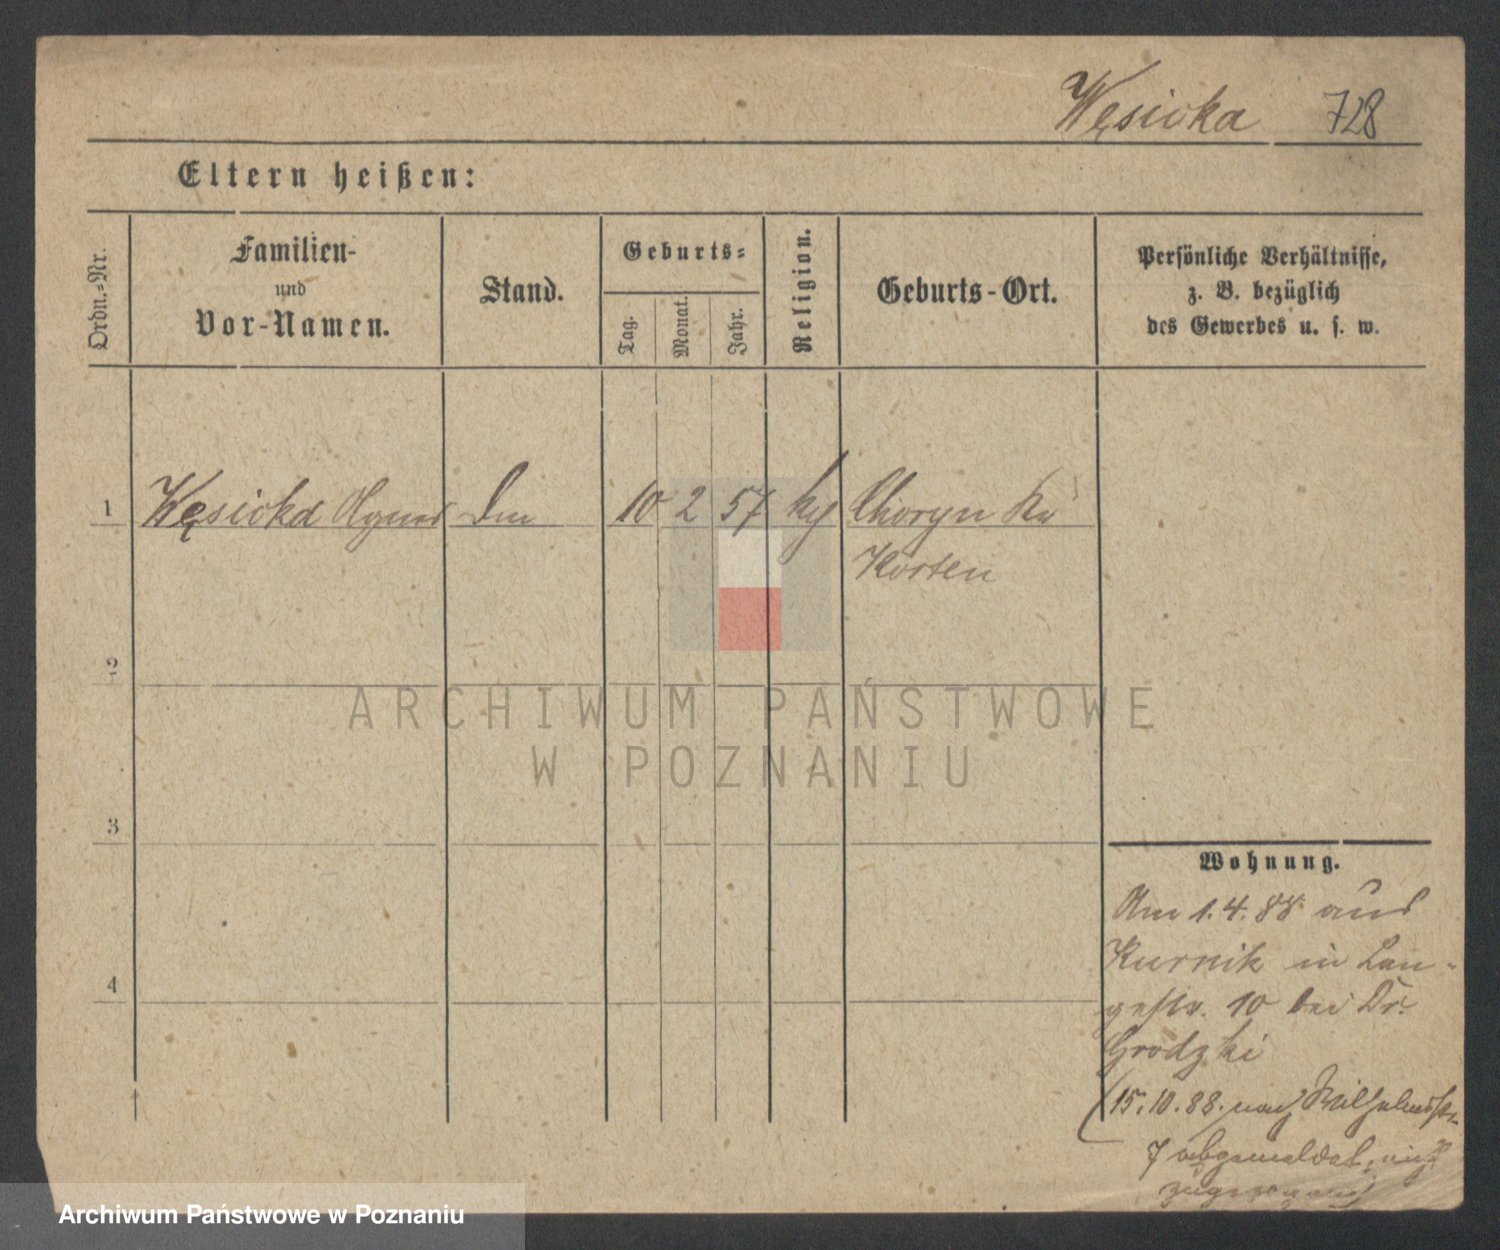 Węsicka 728
Eltern heißen:
Ordn.-Nr.
Familien-
und
Vor-Namen.
Stand.
Geburts-
Tag.
Monat.
Jahr.
Religion.
Geburts-Ort.
Persönliche Verhältnisse,
z. B. bezüglich
des Gewerbes u. s. w.
1 Węsicka 10 2 57 Choryn
Kosten
2
3
4
Wohnung.
Am 1.4.88 aus
Kurnik in Lan-
gestr. 10 bei Dr.
Grodzki
15.10.88. nach Wilhelmstr.
7 abgemeldet,
ARCHIWUM PAŃSTWOWE
W POZNANIU
Archiwum Państwowe w Poznaniu